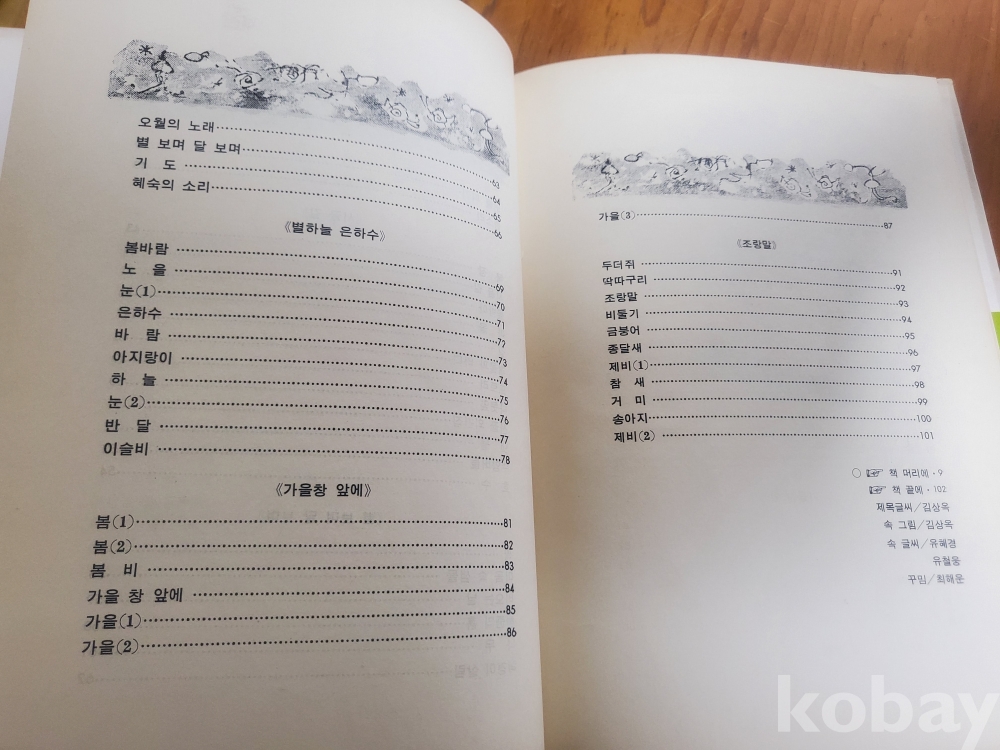 오월의 노래 63
별 보며 달 보며 64
기 도 65
혜숙의 소리 66
《별하늘 은하수》
봄바람 69
노 을 70
눈(1) 71
은하수 72
바 람 73
아지랑이 74
하 늘 75
눈(2) 76
반 달 77
이슬비 78
《가을창 앞에》
봄(1) 81
봄(2) 82
봄 비 83
가을 창 앞에 84
가을(1) 85
가을(2) 86
가을(3) 87
《조랑말》
두더쥐 91
딱따구리 92
조랑말 93
비둘기 94
금붕어 95
종달새 96
제비(1) 97
참 새 98
거 미 99
송아지 100
제비(2) 101
○ ☞ 책 머리에·9
☞ 책 끝에·102
제목글씨/김상옥
속 그림/김상옥
속 글씨/유혜경
유철웅
꾸밈/최해운
kobay